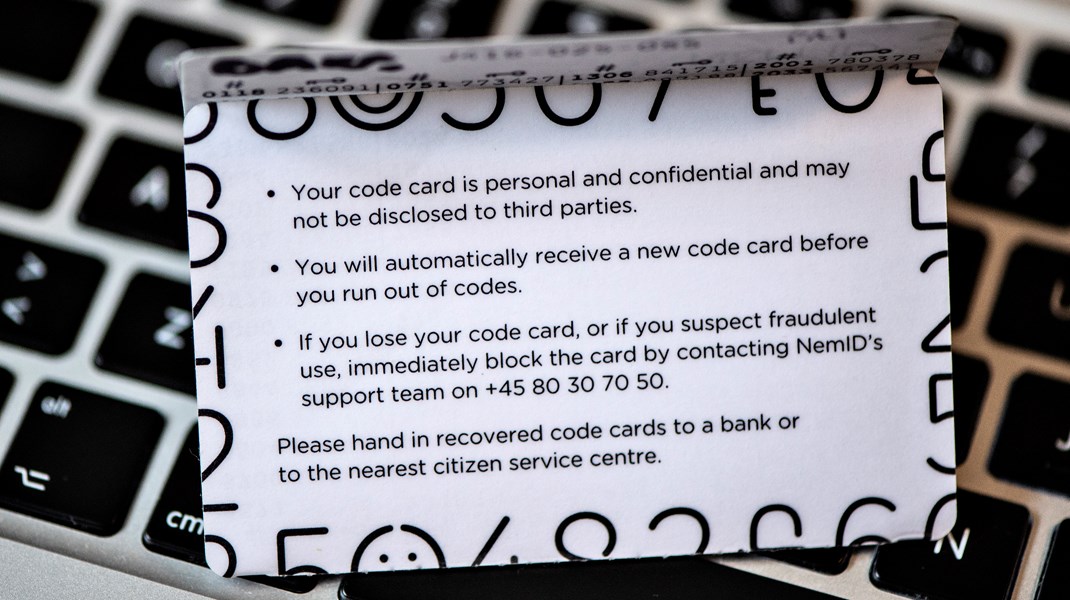 0118 236091|0751 773427|1306 841745|2001 780378
• Your code card is personal and confidential and may
not be disclosed to third parties.
• You will automatically receive a new code card before
you run out of codes.
• If you lose your code card, or if you suspect fraudulent
use, immediately block the card by contacting NemID's
support team on +45 80 30 70 50.
Please hand in recovered code cards to a bank or
to the nearest citizen service centre.
A
Z
alt
cm
N